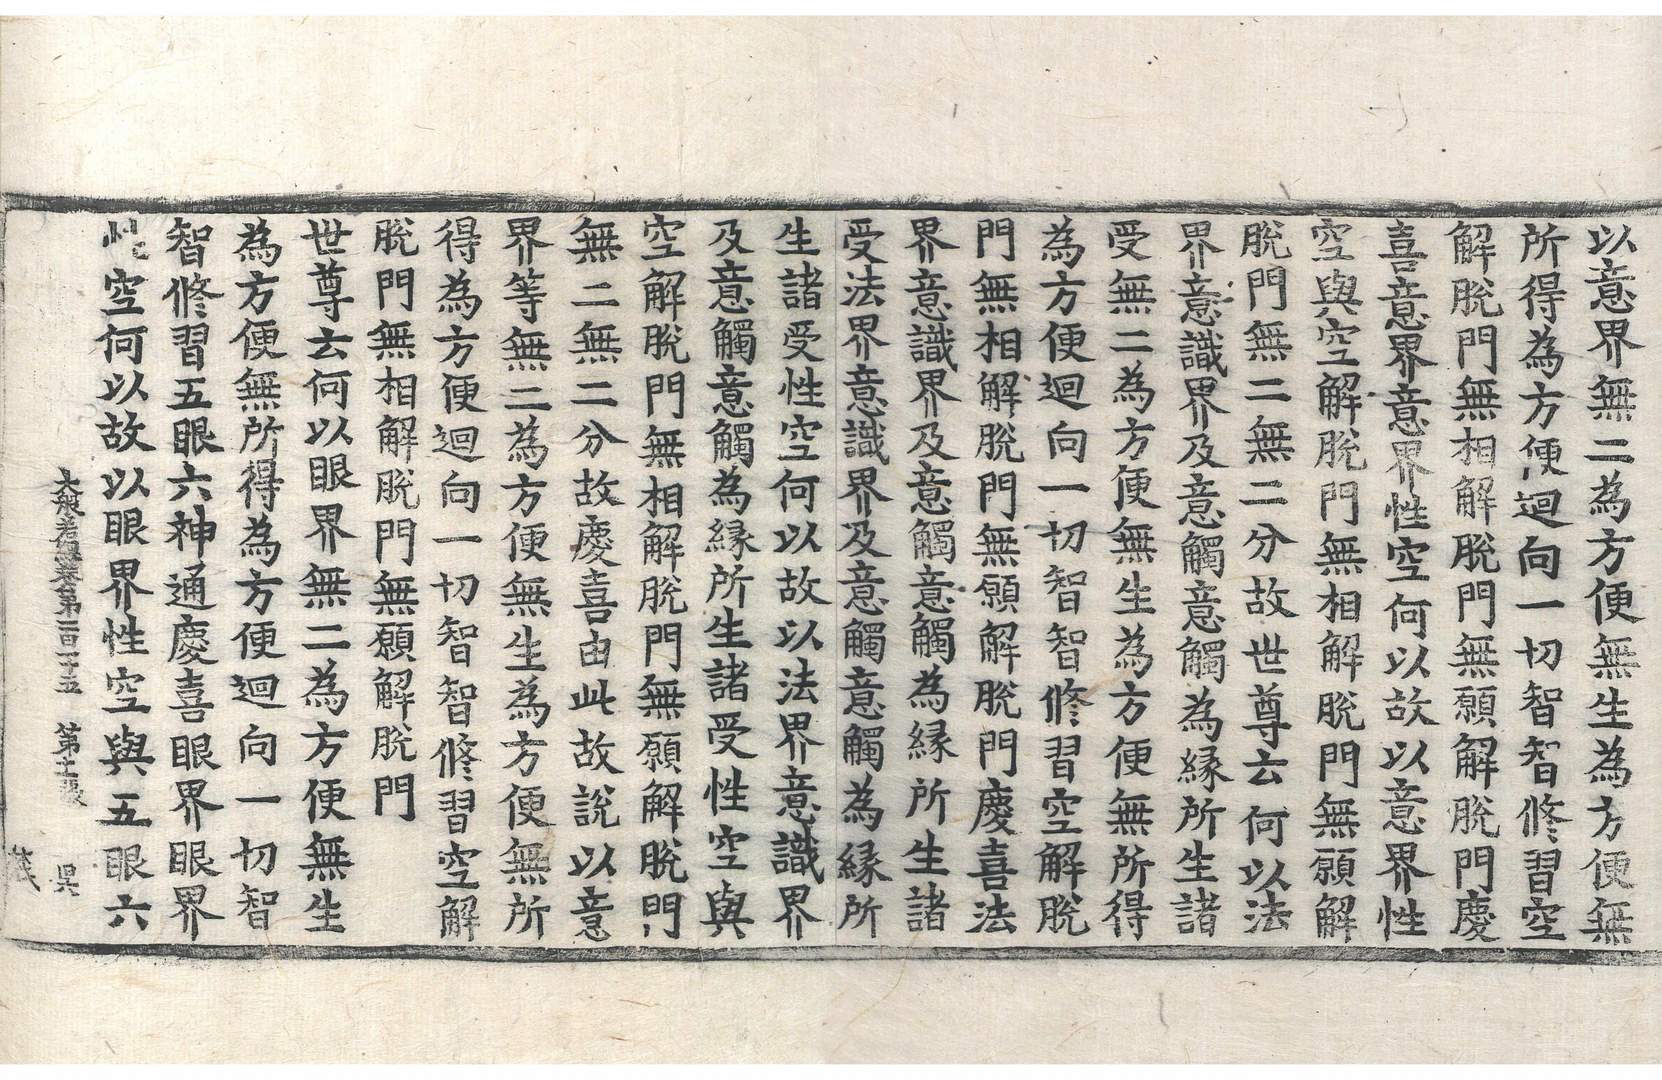 以意界無二為方便無生為方便無
所得為方便迴向一切智智修習空
解脫門無相解脫門無願解脫門慶
喜意界意界性空何以故以意界性
空與空解脫門無相解脫門無願解
脫門無二無二分故世尊云何以法
界意識界及意觸意觸為緣所生諸
受無二為方便無生為方便無所得
為方便迴向一切智智修習空解脫
門無相解脫門無願解脫門慶喜法
界意識界及意觸意觸為緣所生諸
受法界意識界及意觸意觸為緣所
生諸受性空何以故以法界意識界
及意觸意觸為緣所生諸受性空與
空解脫門無相解脫門無願解脫門
無二無二分故慶喜由此故說以意
界等無二為方便無生為方便無所
得為方便迴向一切智智修習空解
脫門無相解脫門無願解脫門
世尊云何以眼界無二為方便無生
為方便無所得為方便迴向一切智
智修習五眼六神通慶喜眼界眼界
性空何以故以眼界性空與五眼六
大般若經卷第一百二十五 第 張 昃